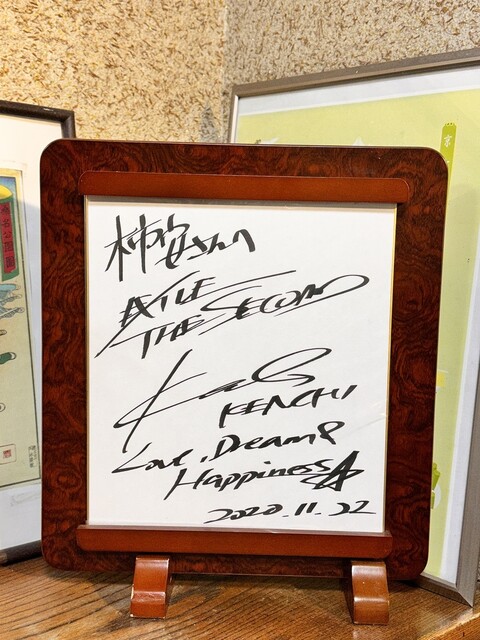 柿安さんへ
EXILE
THE SECOND
KENCHI
Love, Dream &
Happiness☆
2020.11.22